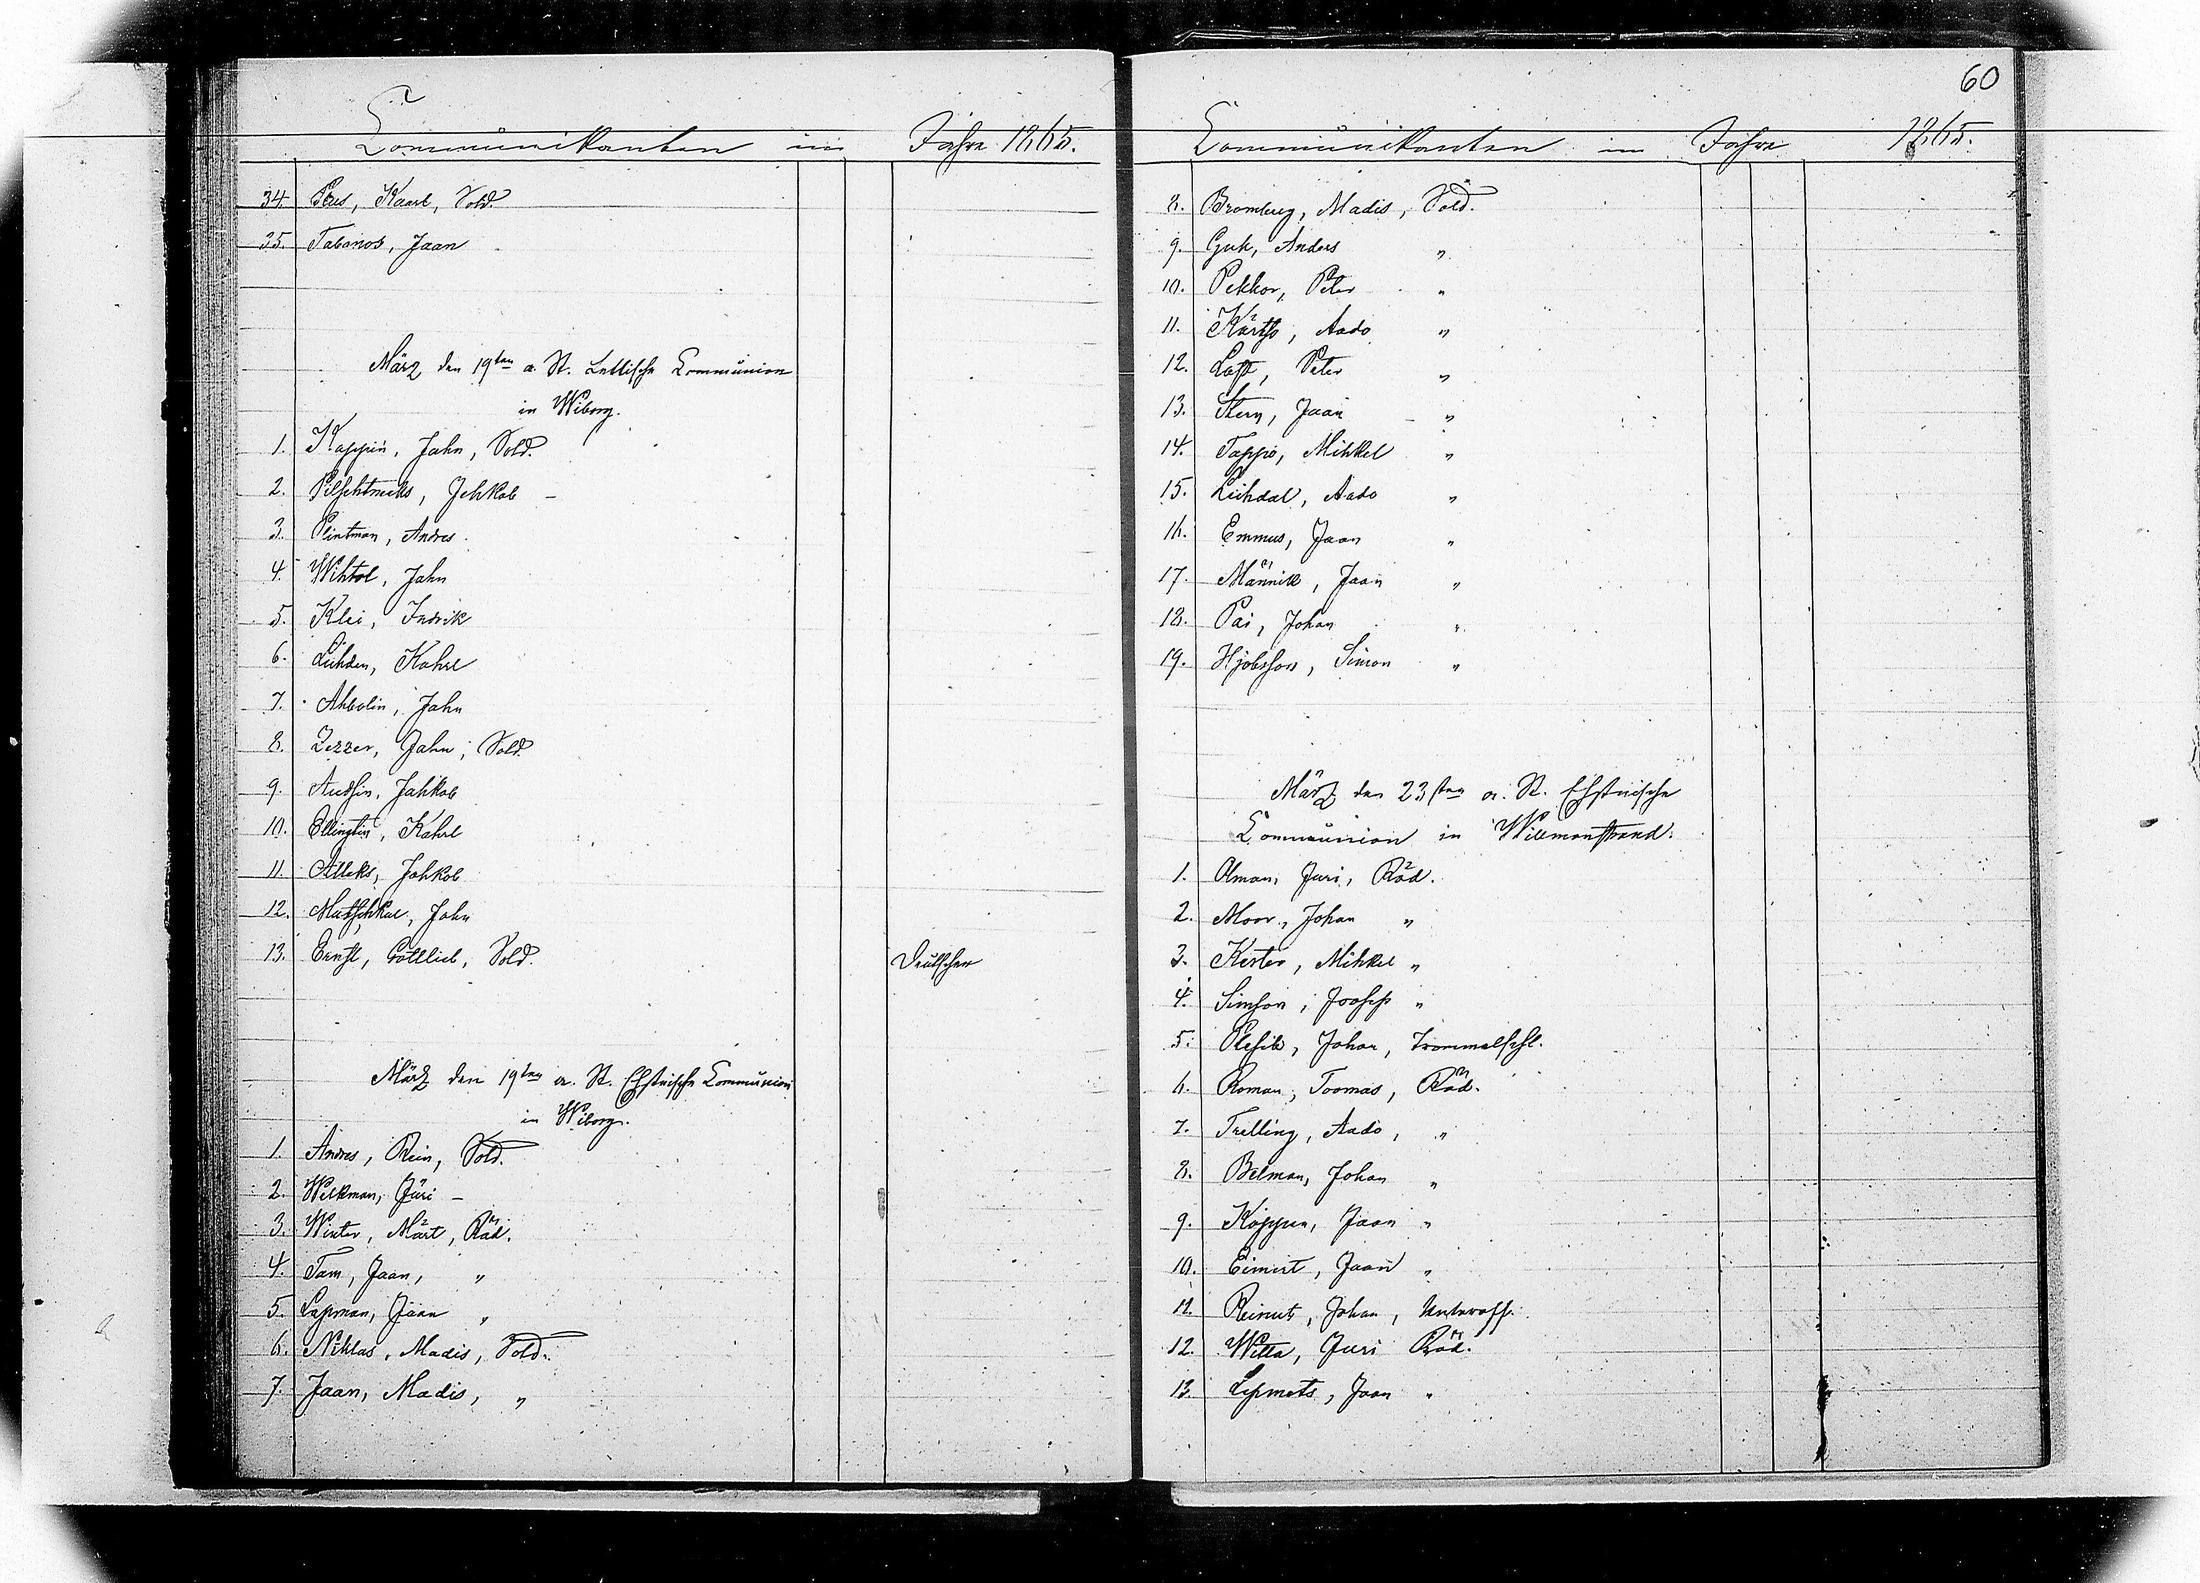 Communikanten im Jahre 1865.
34. Peus, Kaarl, Sold.
35. Tabanos, Jaan
März den 19ten a. St. Lettische Communion
in Wiborg.
1. Kappin, Jahn, Sold.
2. Jehkob –
3. Plintman, Andres.
4. Wihtol, Jahn
5. Klei, Indrik
6. Leihden, Kahrl
7. Ahbolin, Jahn
8. Zezzer, Jahn, Sold.
9. Audsin, Jahkob
10. Ellingtin, Kahrl
11. Alleks, Jahkob
12. Jahn
13. Ernst, Gottlieb, Sold. Deutscher
März den 19ten a. St. Ehstnische Communion
in Wiborg.
1. Andres, Rein, Sold.
2. Welkman, Jüri –
3. Winter, Märt, Räd.
4. Tam, Jaan, "
5. Lapman, Jaan "
6. Niklas, Madis, Sold.
7. Jaan, Madis, "
60
Communikanten im Jahre 1865.
8. Bromberg, Madis, Sold.
9. Guk, Anders "
10. Pekkor, Peter "
11. Aado "
12. Peter "
13. Stern, Jaan – "
14. Tappo, Mihkel "
15. Leihdal, Aado "
16. Emmus, Jaan "
17. Männik, Jaan "
18. Pai, Johan "
19. Simon "
März den 23sten a. St. Ehstnische
Communion in Wilmanstrand.
1. Olman, Juri, Räd.
2. Moor, Johan "
3. Kester, Mihkel "
4. Simson, Joosep "
5. Johan, Trommelschl.
6. Roman, Toomas, Räd.
7. Trelling, Aado, "
8. Belman, Johan "
9. Köppen, Jaan "
10. Eimert, Jaan "
11. Reinut, Johan, Unteroff.
12. Witta, Juri Räd.
13. Lepmets, Jaan "